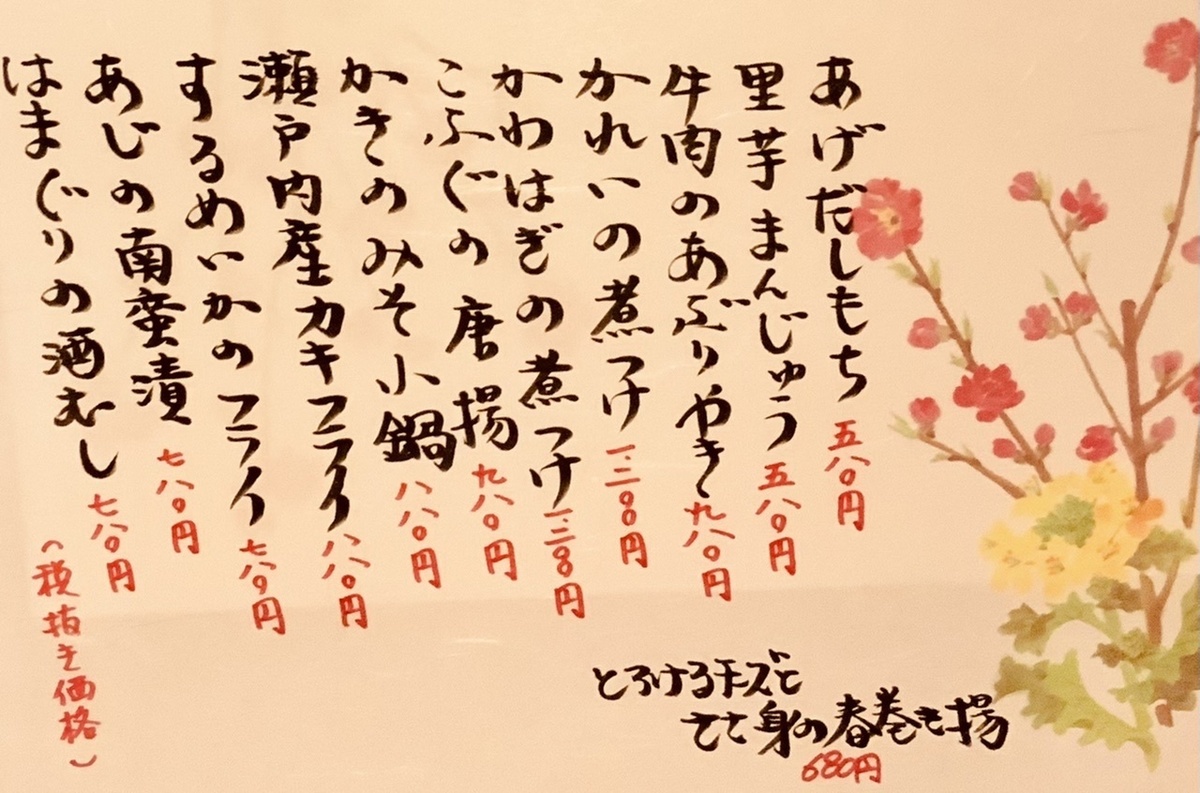 あげだしもち 五八〇円
里芋まんじゅう 五八〇円
牛肉のあぶりやき 九八〇円
かれいの煮つけ 一、二〇〇円
かわはぎの煮つけ 一、三〇〇円
こふぐの唐揚 九八〇円
かきのみそ小鍋 八八〇円
瀬戸内産カキフライ 八八〇円
するめいかのフライ 七八〇円
あじの南蛮漬 七八〇円
はまぐりの酒むし 七八〇円
(税抜き価格)
とろけるチーズと
ささ身の春巻き揚
680円